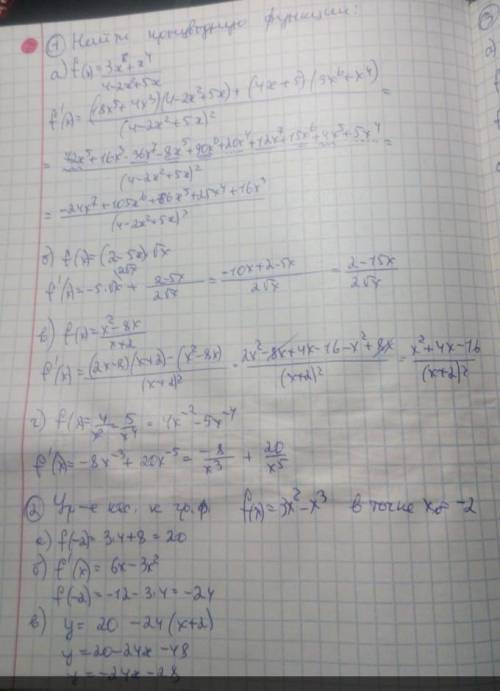 ① Найти производную функции:
а) f(x) = (3x⁶+x⁴)/(4-2x²+5x)
f'(x) = ((18x⁵+4x³)(4-2x²+5x)+(4x+5)(3x⁶+x⁴))/(4-2x²+5x)² =
= (72x⁵+16x³-36x⁷-8x⁵+90x⁶+20x⁴+12x⁷+15x⁶+4x⁵+5x⁴)/(4-2x²+5x)² =
= (-24x⁷+105x⁶+86x⁵+25x⁴+16x³)/(4-2x²+5x)²
б) f(x) = (2-5x)·√x
f'(x) = -5·√x + (2-5x)/(2√x) = (-10x+2-5x)/(2√x) = (2-15x)/(2√x)
в) f(x) = (x²-8x)/(x+2)
f'(x) = ((2x-8)(x+2)-(x²-8x))/(x+2)² = (2x²-8x+4x-16-x²+8x)/(x+2)² = (x²+4x-16)/(x+2)²
г) f(x) = 4/x² - 5/x⁴ = 4x⁻² - 5x⁻⁴
f'(x) = -8x⁻³ + 20x⁻⁵ = -8/x³ + 20/x⁵
② Ур-е кас. к гр. ф. f(x) = 3x² - x³ в точке x₀ = -2
а) f(-2) = 3·4+8 = 20
б) f'(x) = 6x-3x²
f(-2) = -12-3·4 = -24
в) y = 20 -24(x+2)
y = 20-24x-48
y = -24x-28